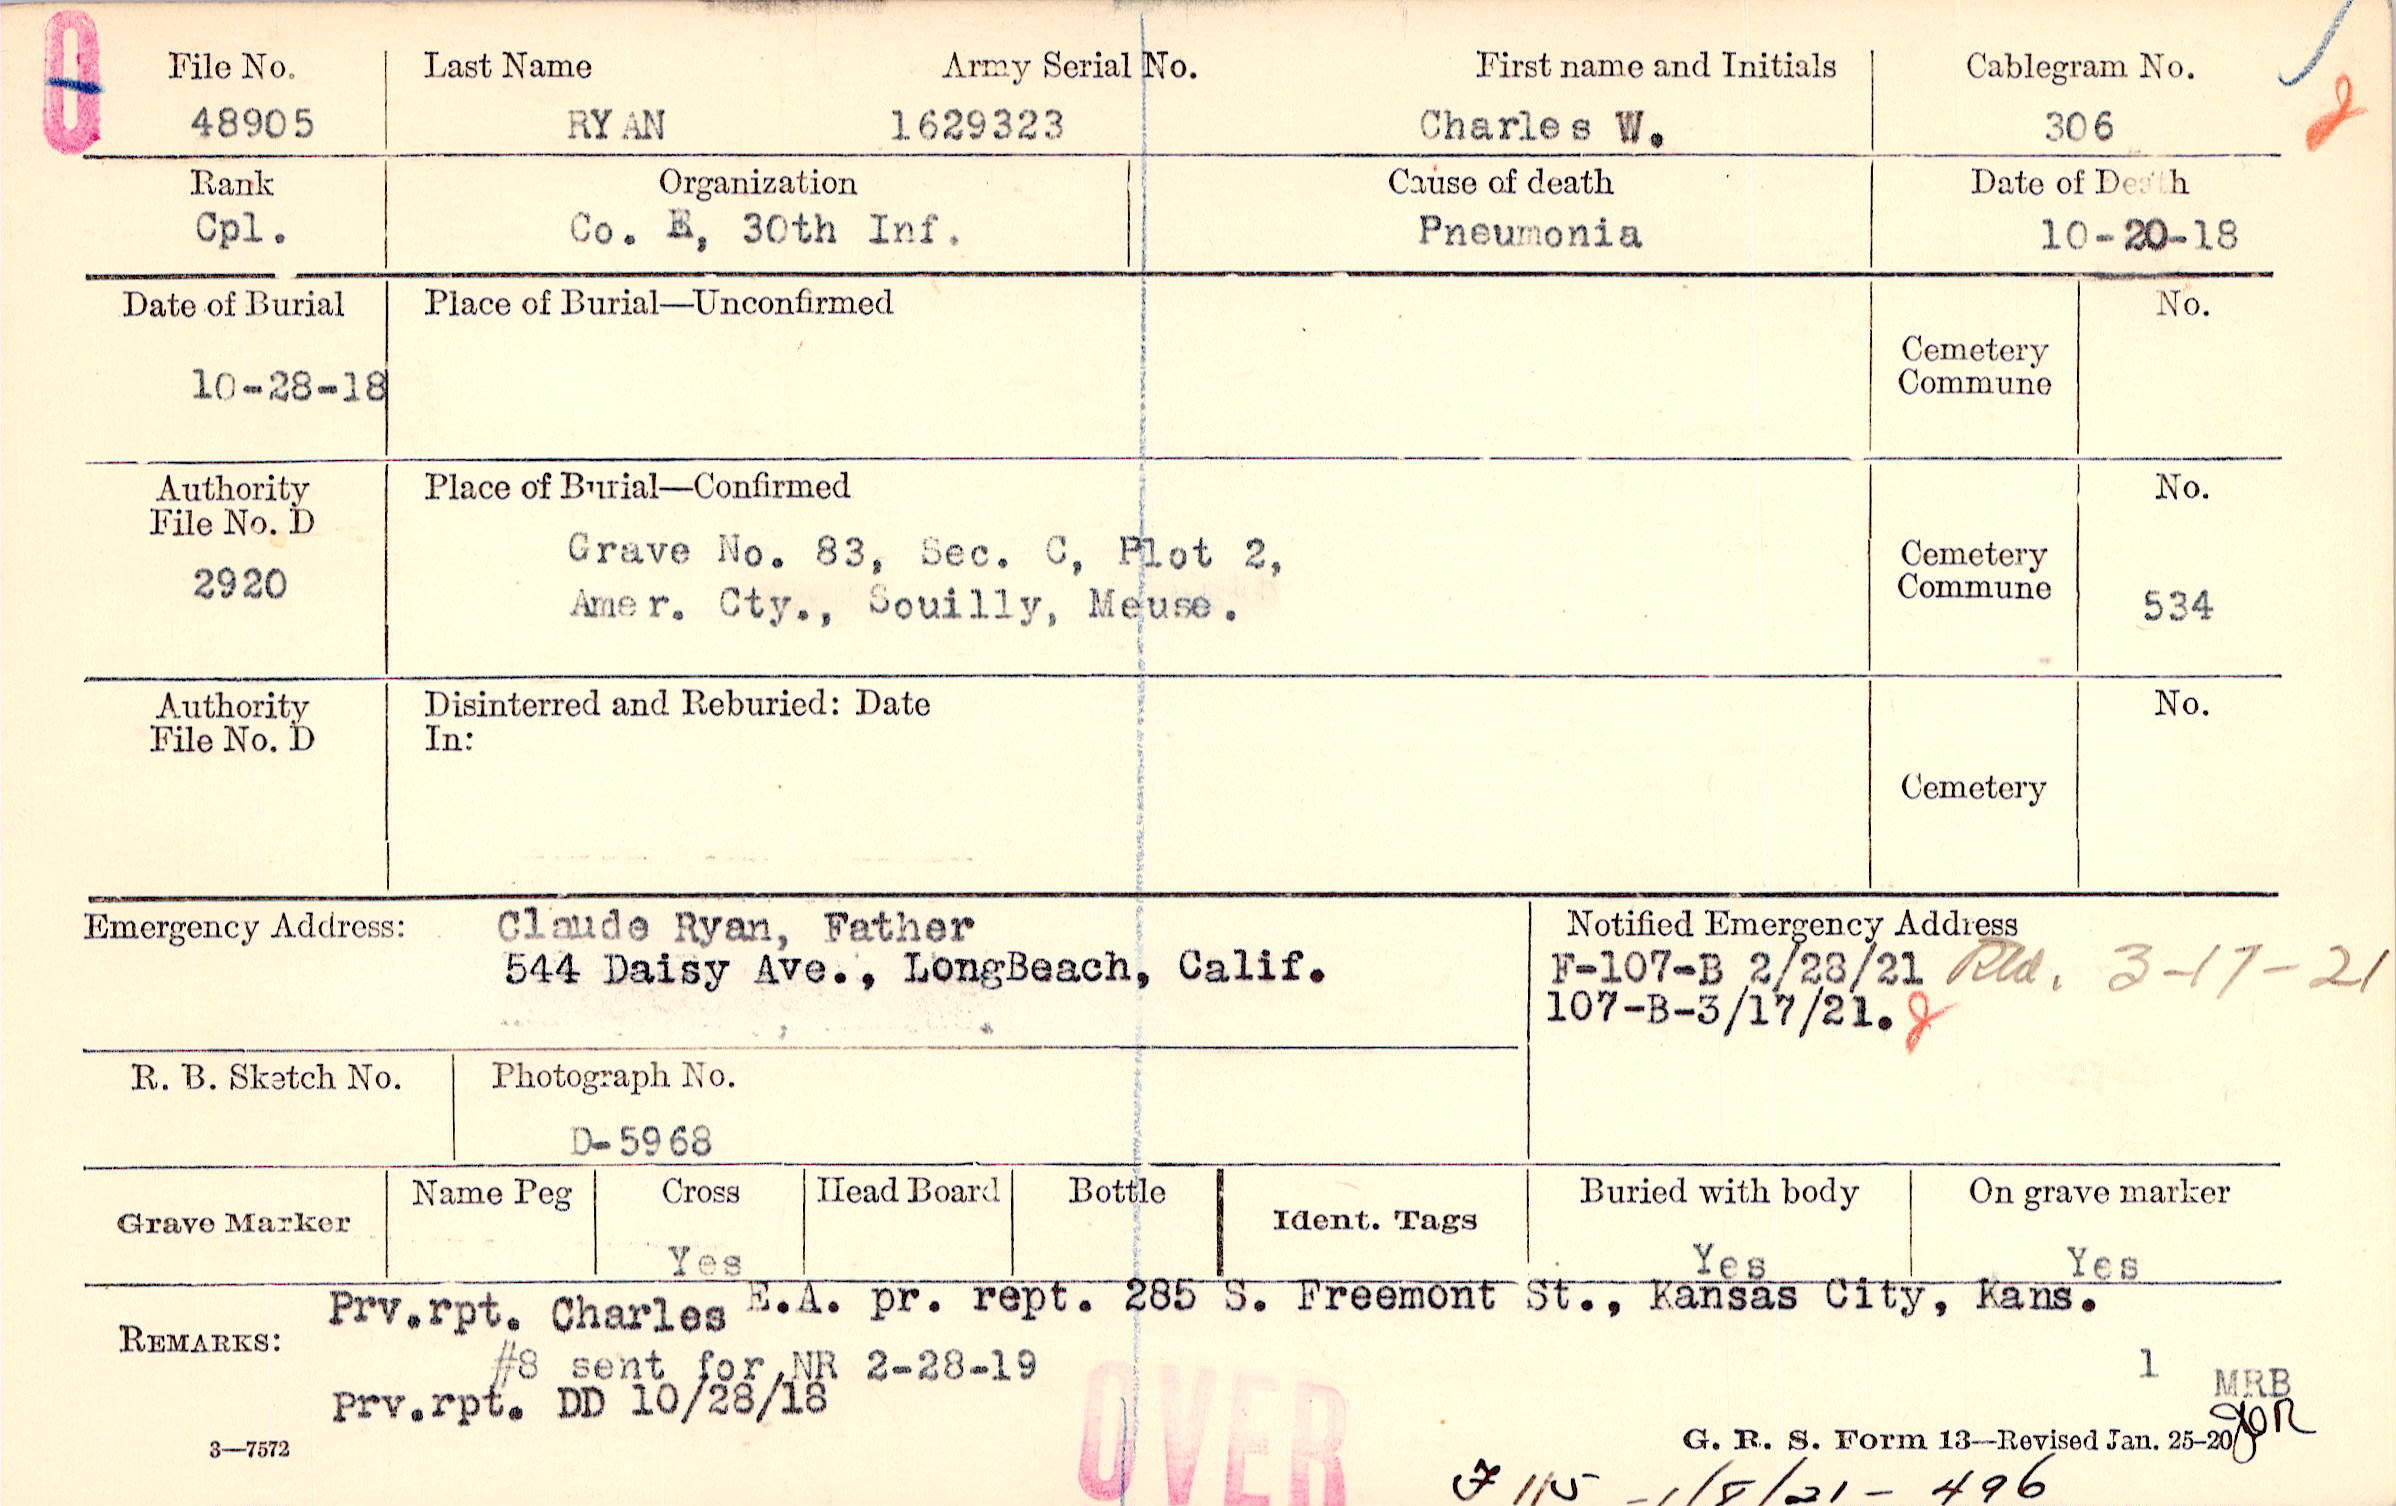 O
File No. Last Name Army Serial No. First name and Initials Cablegram No.
48905 RYAN 1629323 Charles W. 306
Rank Organization Cause of death Date of Death
Cpl. Co. E, 30th Inf. Pneumonia 10-20-18
Date of Burial Place of Burial—Unconfirmed No.
Cemetery
Commune
10-28-18
Authority Place of Burial—Confirmed No.
File No. D
Grave No. 83, Sec. C, Plot 2, Cemetery
2920 Commune
Amer. Cty., Souilly, Meuse. 534
Authority Disinterred and Reburied: Date No.
File No. D In:
Cemetery
Emergency Address: Claude Ryan, Father Notified Emergency Address
544 Daisy Ave., LongBeach, Calif. F-107-B 2/28/21 3-17-21
107-B-3/17/21.
R. B. Sketch No. Photograph No.
D-5968
Grave Marker Name Peg Cross Head Board Bottle Ident. Tags Buried with body On grave marker
Yes Yes Yes
Prv.rpt. Charles E.A. pr. rept. 285 S. Freemont St., Kansas City, Kans.
REMARKS:
#8 sent for NR 2-28-19 1 MRB
Prv.rpt. DD 10/28/18
3—7572 OVER G. R. S. Form 13—Revised Jan. 25-20
115 -1/8/21- 496